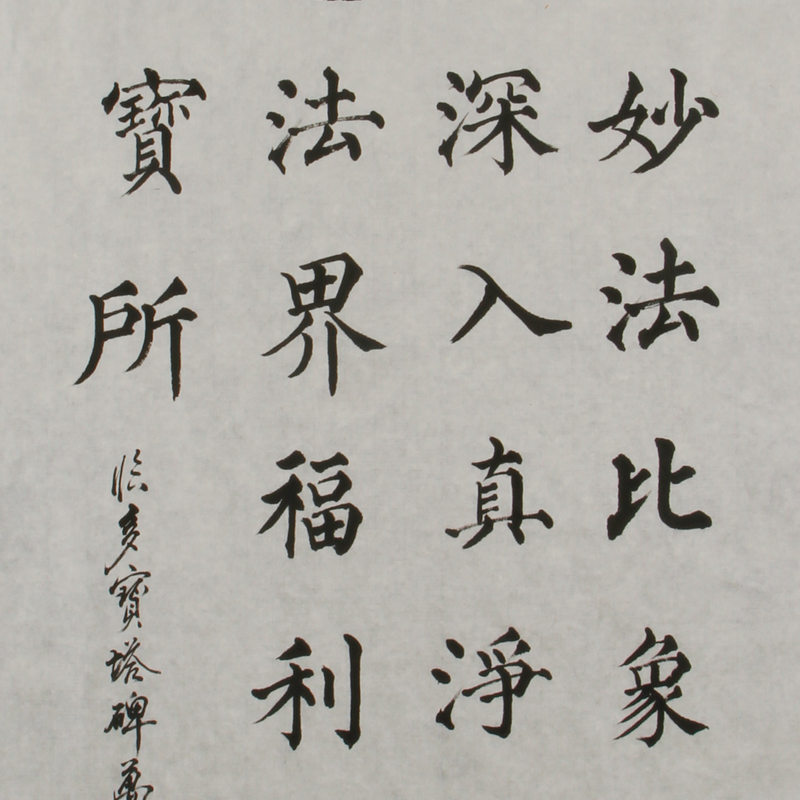 妙法比象
深入真淨
法界福利
寶所
临多寶塔碑